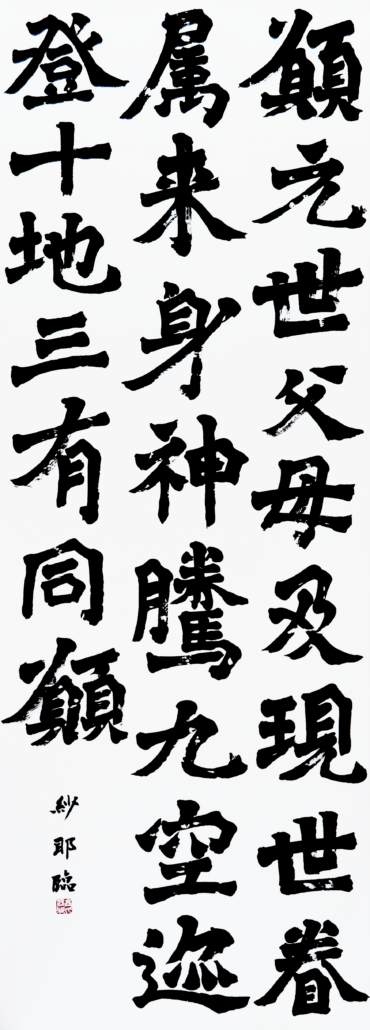 顚元世父母及現世眷
属来身神騰九空迩
登十地三有同顚
紗耶臨